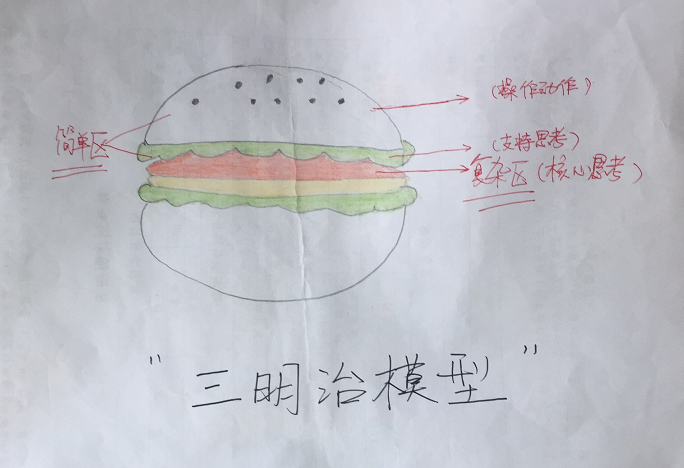 (操作动作)
简单区
(支持思考)
复杂区(核心思考)
"三明治模型"